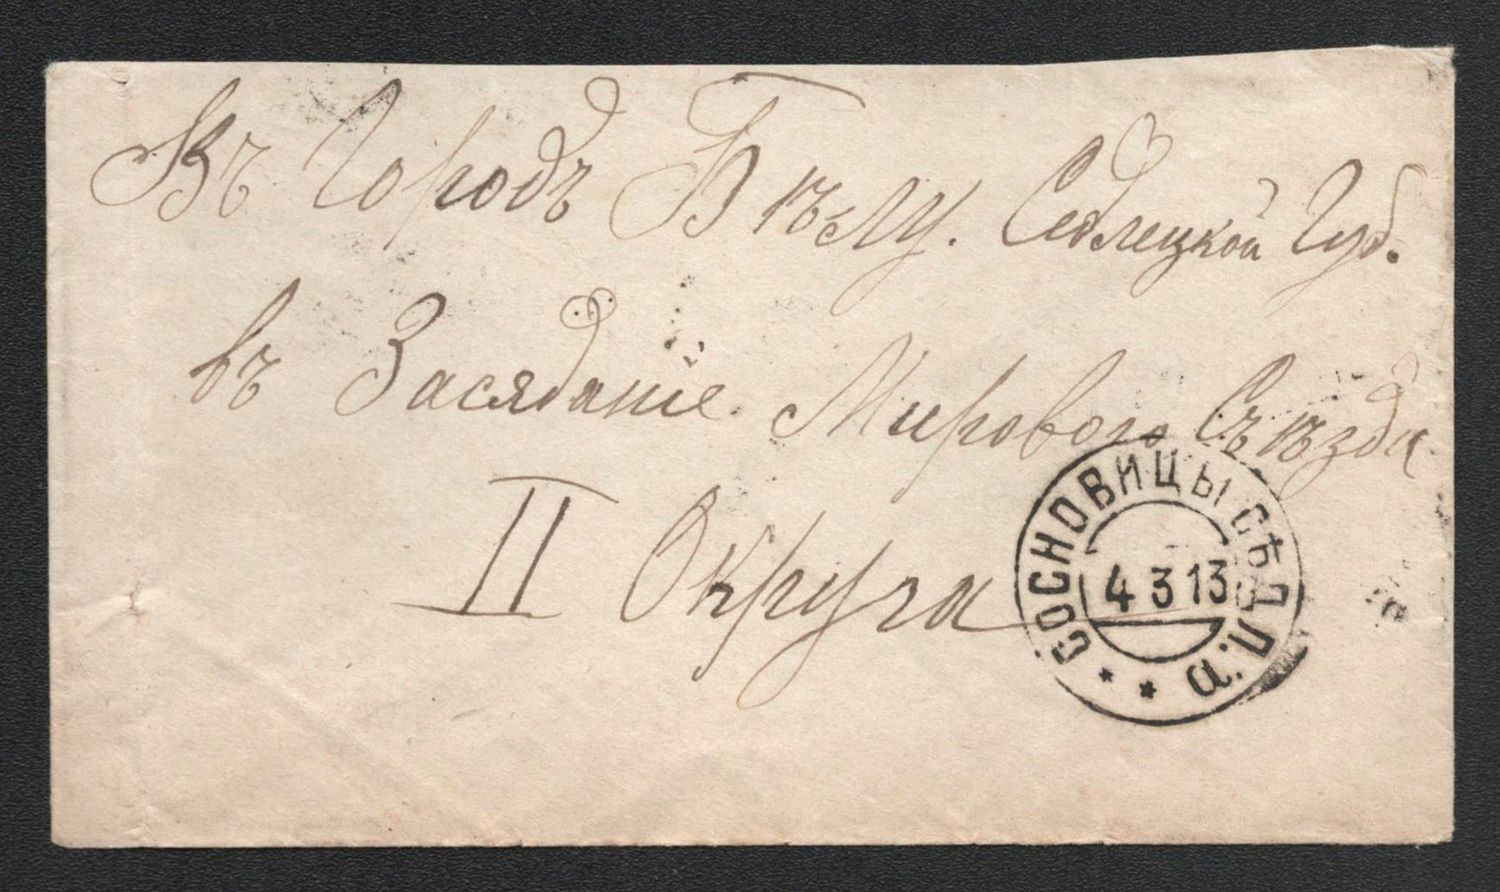 Въ Городъ Бѣлу. Седлецкой Губ.
въ Засяданіе Мироваго Съѣзда
II Округа
СОСНОВИЦЫ СѢДЛ.
4 3 13
а.
* *